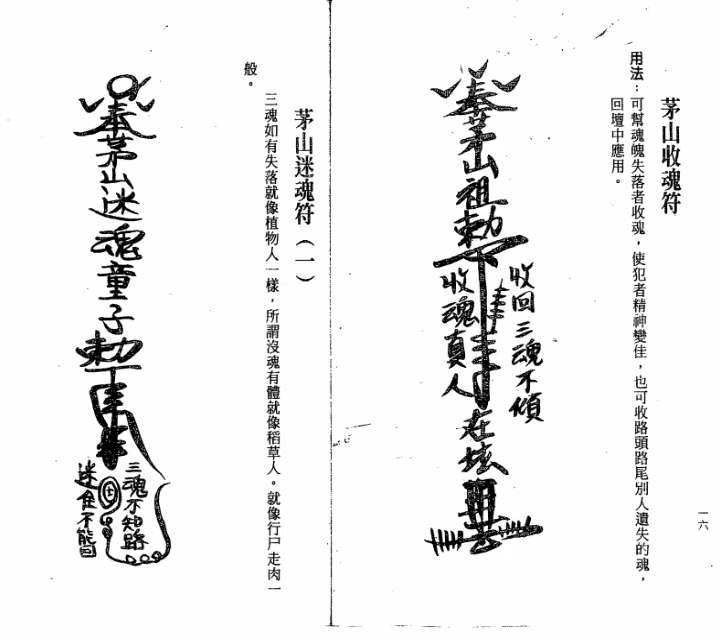 茅山收魂符
用法：可幫魂魄失落者收魂，使犯者精神變佳，也可收路頭路尾別人遺失的魂，
回壇中應用。
奉茅山祖勅下
收回三魂不傾
收魂真人
在坛
一六
茅山迷魂符（一）
三魂如有失落就像植物人一樣，所謂沒魂有體就像稻草人。就像行尸走肉一
般。
奉茅山迷魂童子勅下
三魂不知路
迷住不能回